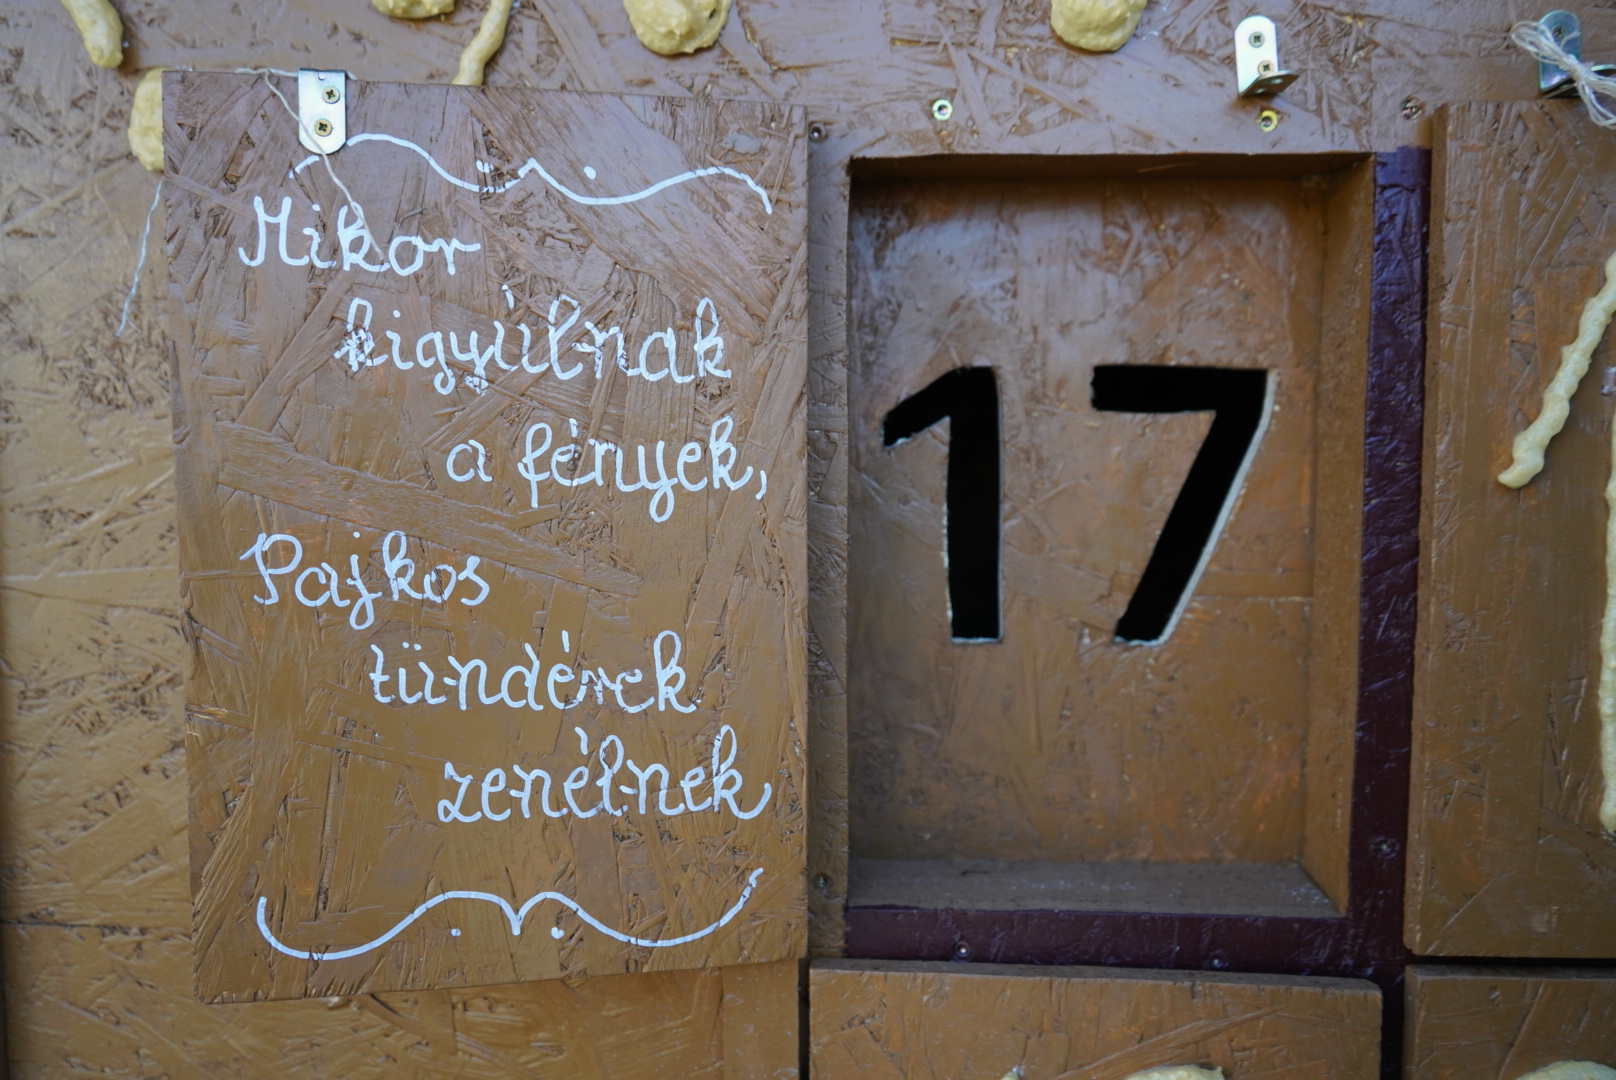 Mikor
kigyúlnak
a fények,
Pajkos
tündérek
zenélnek
17